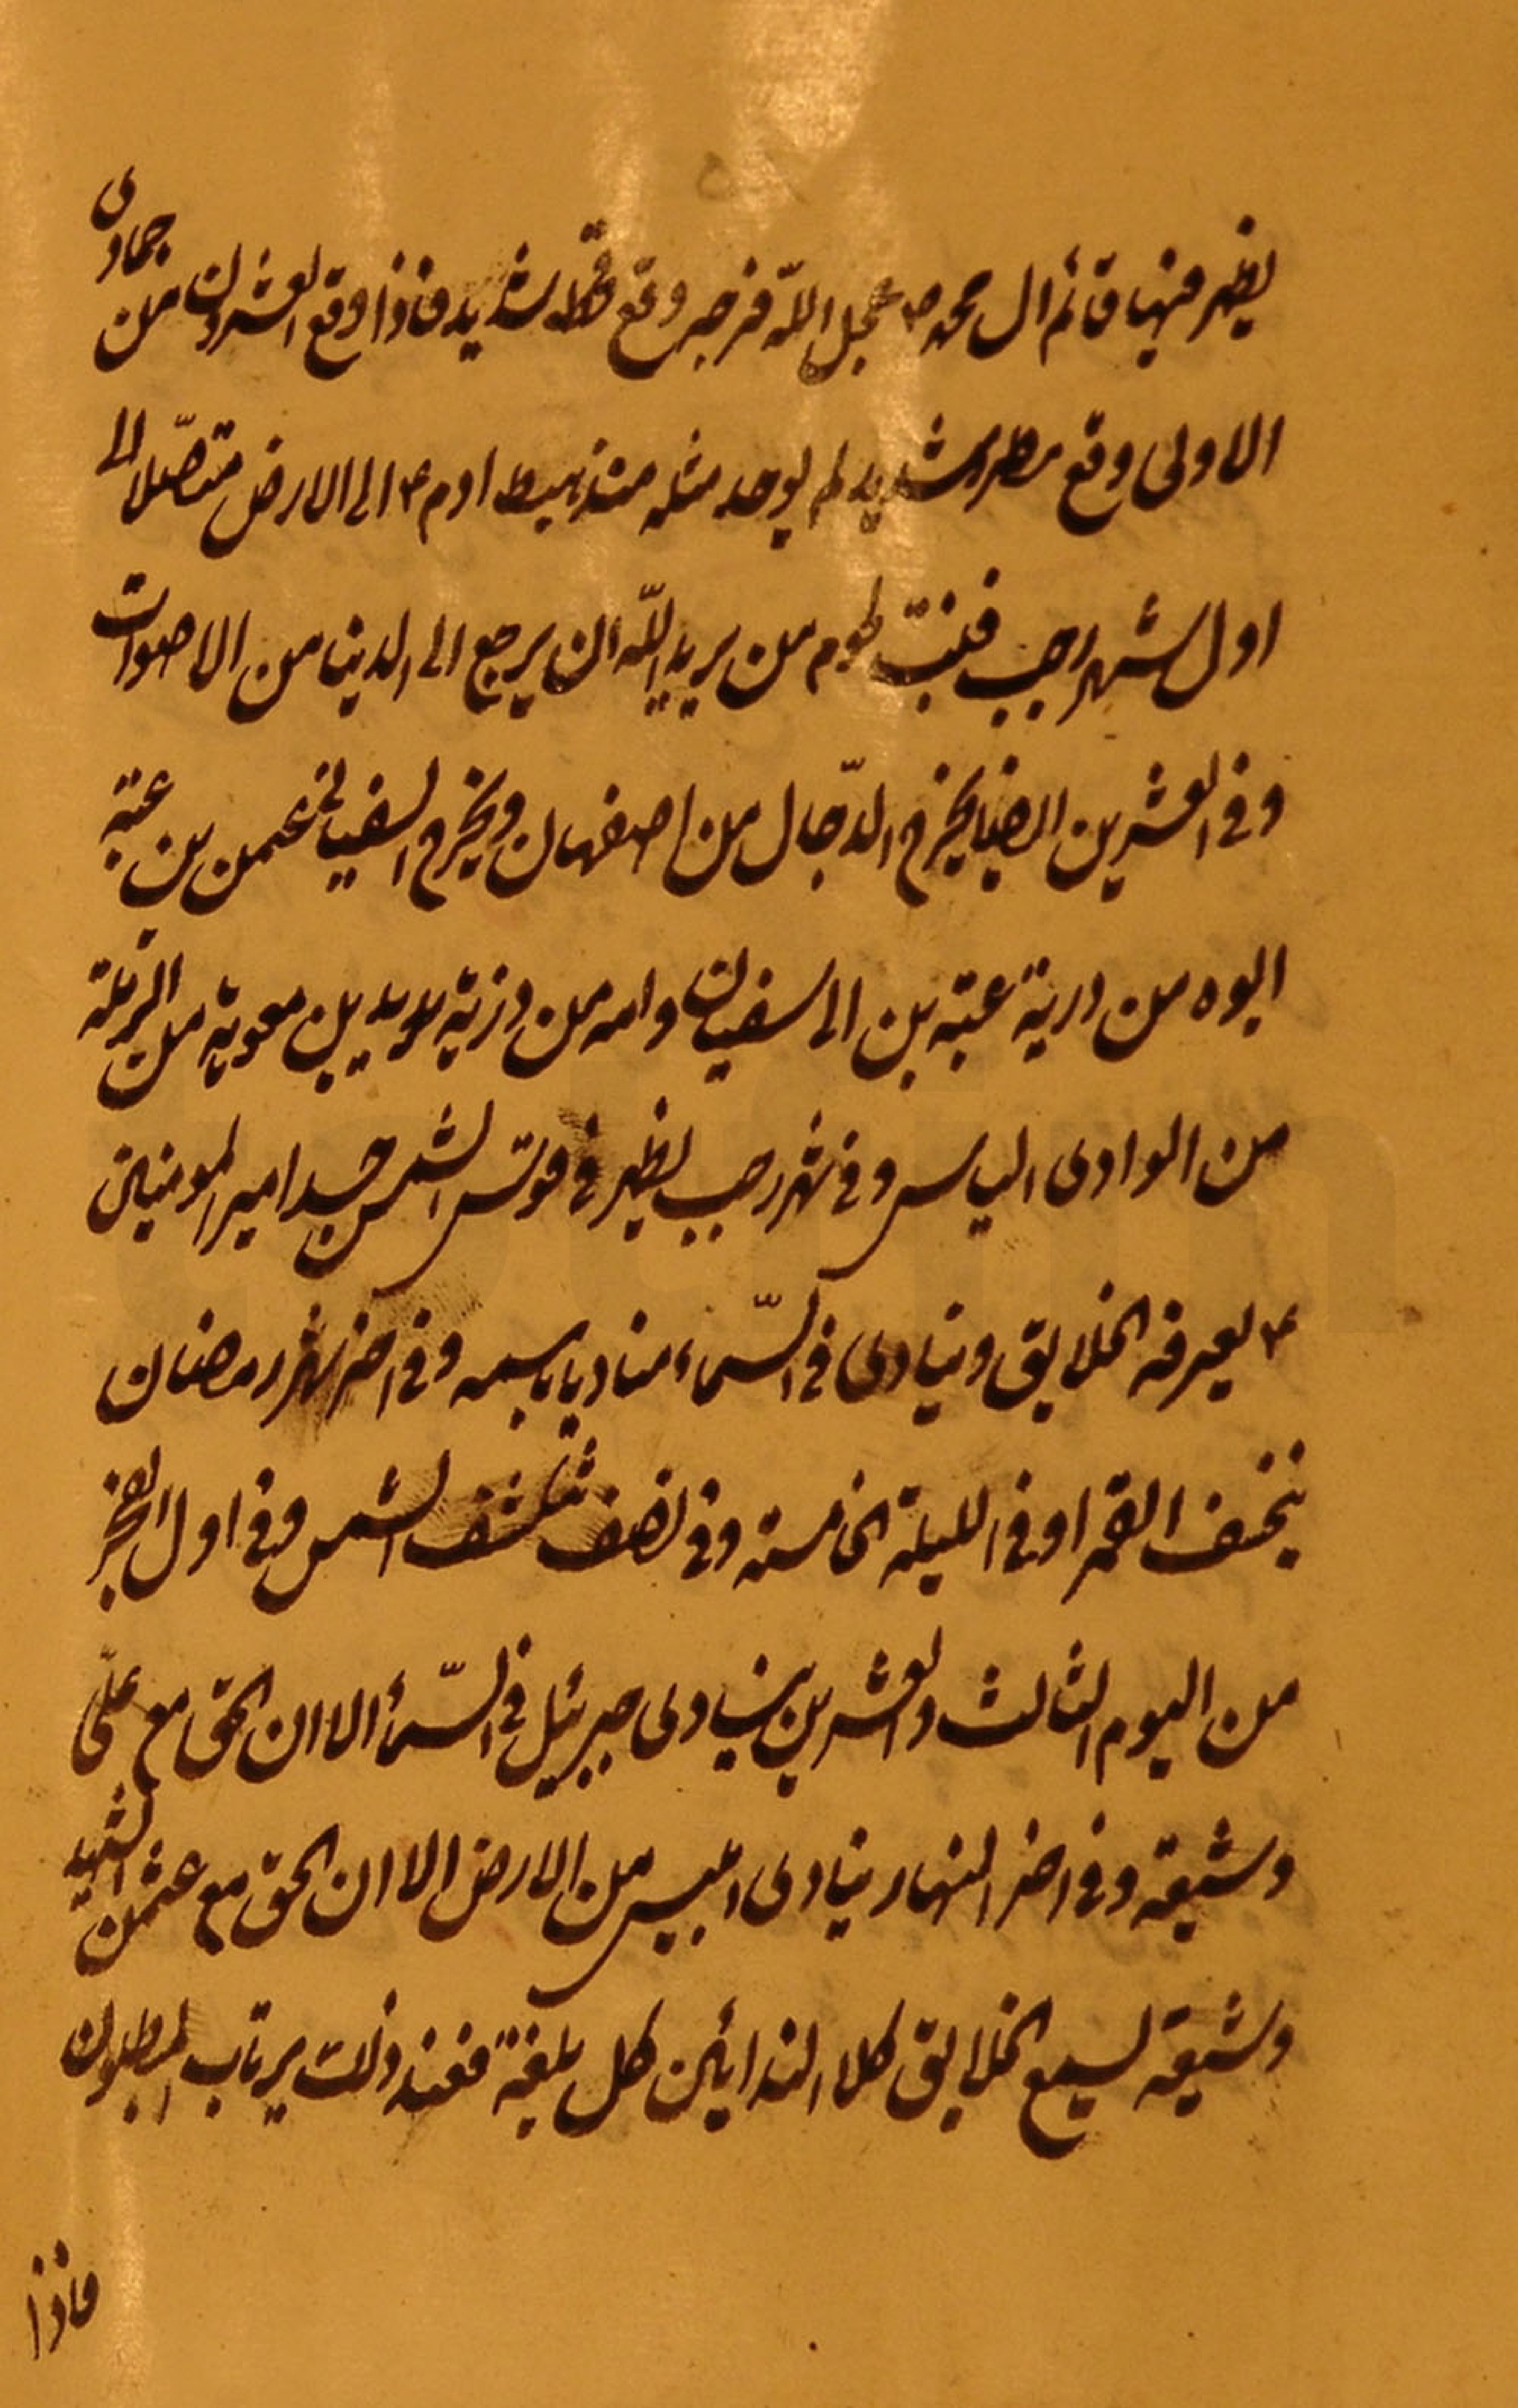 يظهر فيها قائم ال محمد ص عجل الله فرجه وقع قحط شديد فاذا وقع العشرون من جمادى
الاولى وقع مطر شديد لم يوجد مثله منذ هبط ادم ع الى الارض متصلا الى
اول شهر رجب فنبت لحوم من يريد الله ان يرجع الى الدنيا من الاموات
وفى العشرين ايضا يخرج الدجال من اصفهان ويخرج السفيانى عثمن بن عتبة
ابوه من درية عتبة بن ابى سفيان وامه من ذرية يزيد بن معوية من الرملة
من الوادى اليابس وفى شهر رجب يظهر فى قرص الشمس جسد امير المومنين
ع يعرفه الخلايق وينادى فى السماء مناد باسمه وفى اخر شهر رمضان
ينخسف القمر او فى الليلة الخامسة وفى نصفه تنكسف الشمس وفى اول الفجر
من اليوم الثالث والعشرين ينادى جبرئيل فى السماء الا ان الحق مع على
وشيعته وفى اخر النهار ينادى ابليس من الارض الا ان الحق مع عثمن الشهيد
وشيعته يسمع الخلايق كلا الندائين كل بلغته فعند ذلك يرتاب المبطلون
فاذا